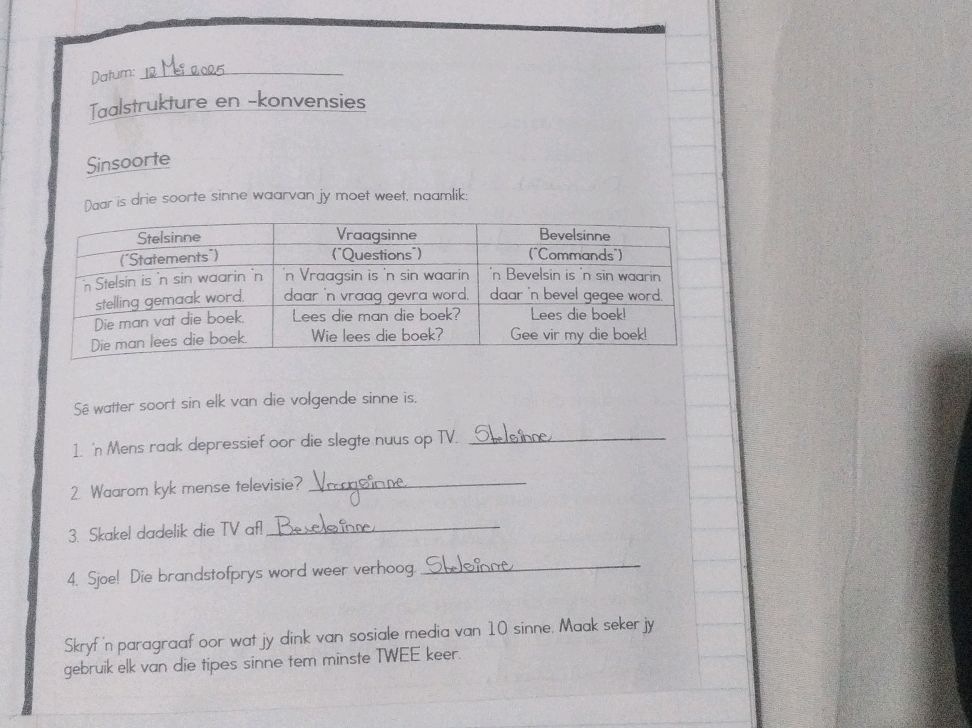 Datum: 12 Mei 2025
Taalstrukture en -konvensies
Sinsoorte
Daar is drie soorte sinne waarvan jy moet weet, naamlik:
Stelsinne Vraagsinne Bevelsinne
("Statements") ("Questions") ("Commands")
'n Stelsin is 'n sin waarin 'n 'n Vraagsin is 'n sin waarin 'n Bevelsin is 'n sin waarin
stelling gemaak word. daar 'n vraag gevra word. daar 'n bevel gegee word.
Die man vat die boek. Lees die man die boek? Lees die boek!
Die man lees die boek. Wie lees die boek? Gee vir my die boek!
Sê watter soort sin elk van die volgende sinne is.
1. 'n Mens raak depressief oor die slegte nuus op TV. Stelsinne
2. Waarom kyk mense televisie? Vraagsinne
3. Skakel dadelik die TV af! Bevelsinne
4. Sjoe! Die brandstofprys word weer verhoog. Stelsinne
Skryf 'n paragraaf oor wat jy dink van sosiale media van 10 sinne. Maak seker jy
gebruik elk van die tipes sinne tem minste TWEE keer.